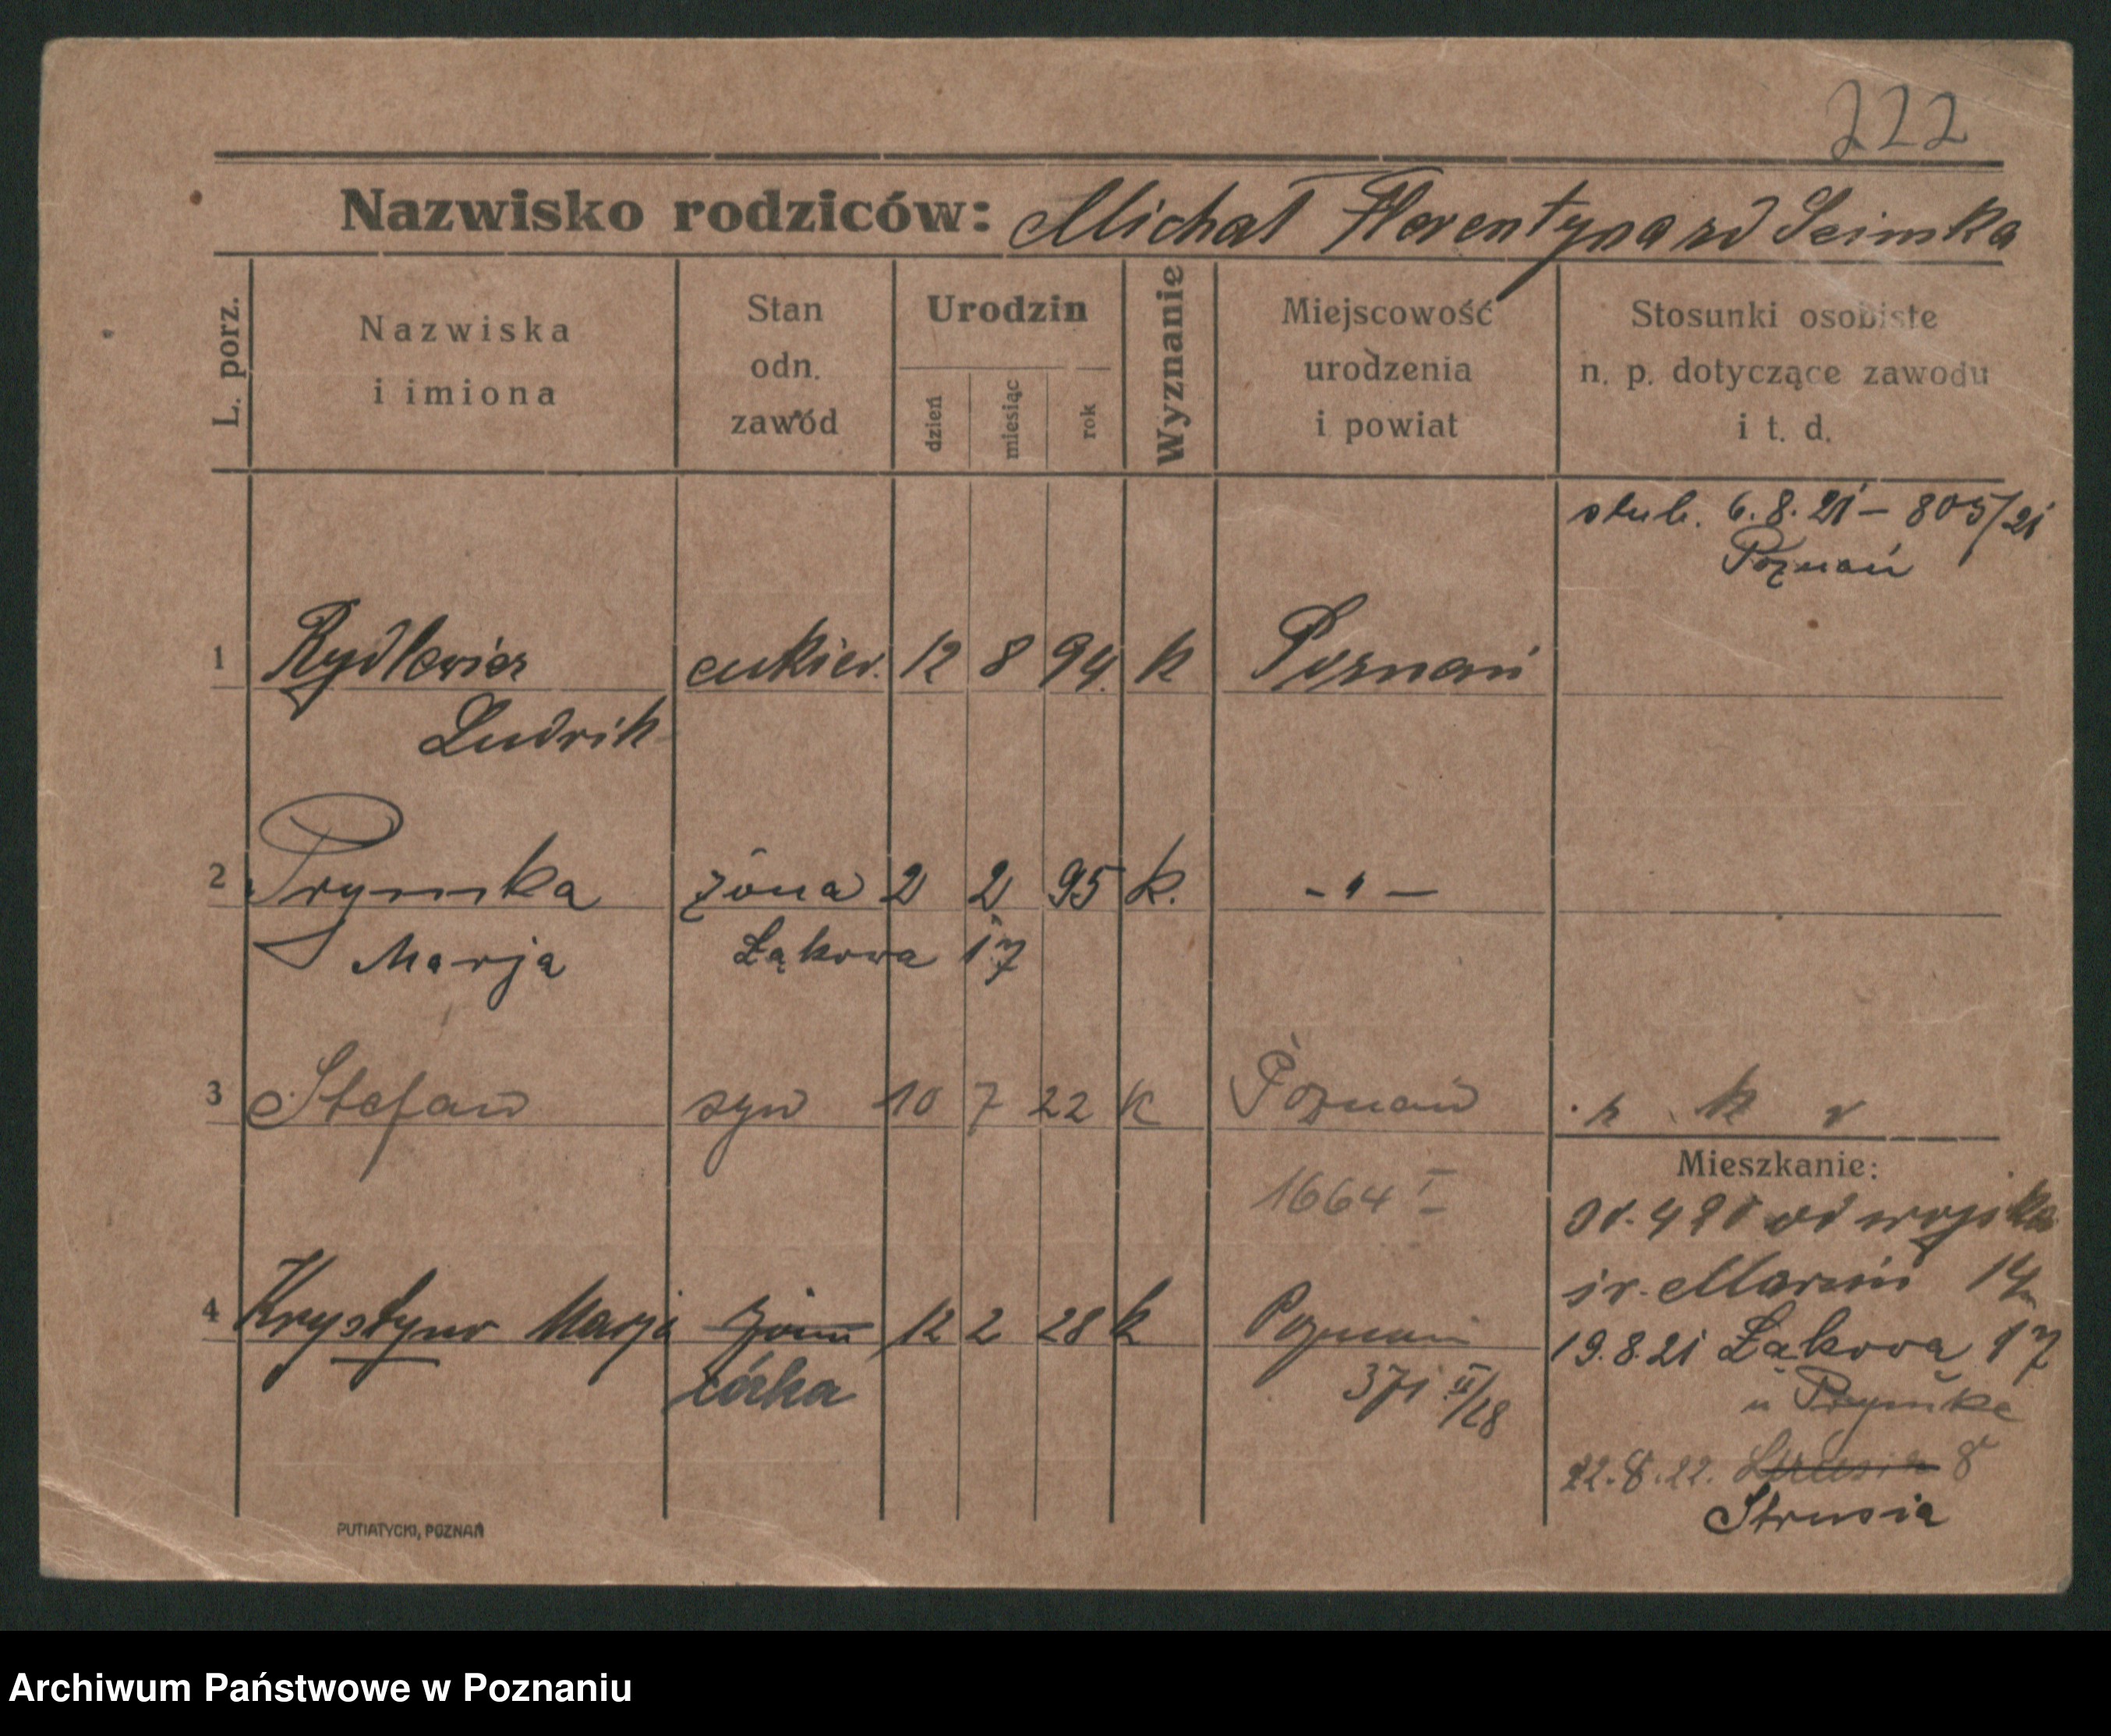 222
Nazwisko rodziców: Michał Florentyna zd Scimska
L. porz.
Nazwiska i imiona
Stan odn. zawód
Urodzin
dzień miesiąc rok
Wyznanie
Miejscowość urodzenia i powiat
Stosunki osobiste n. p. dotyczące zawodu i t. d.
ślub. 6.8.21 – 805/21
Poznań
1 Rydlewicz cukier. 12 8 94. k Poznań
Ludwik
2 Prymka żona 2 2 95 k. – " –
Marja Łąkowa 17
3 Stefan syn 10 7 22 k Poznań
r k v
1664 I
Mieszkanie:
od wojska
św. Marcin 14
4 Krystyna Marja żona 12 2 28 k Poznań
19.8.21 Łąkowa 17
córka
371 II/28
u Prymke
22.8.22. 8
Strusia
PUTIATYCKI, POZNAŃ
Archiwum Państwowe w Poznaniu